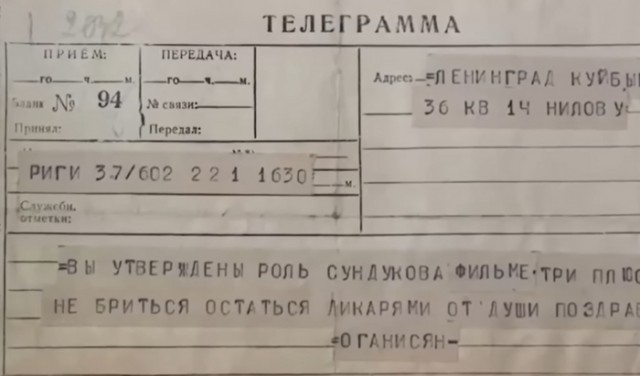 2032
ТЕЛЕГРАММА
ПРИЁМ:
го ч. м.
Бланк № 94
Принял:
ПЕРЕДАЧА:
го ч. м.
№ связи:
Передал:
Адрес: =ЛЕНИНГРАД КУЙБЫ
36 КВ 14 НИЛОВУ
РИГИ 37/602 22 1 1630 м.
Служебн.
отметки:
=ВЫ УТВЕРЖДЕНЫ РОЛЬ СУНДУКОВА ФИЛЬМЕ ТРИ ПЛЮС
НЕ БРИТЬСЯ ОСТАТЬСЯ ДИКАРЯМИ ОТ ДУШИ ПОЗДРАВ
=ОГАНИСЯН-